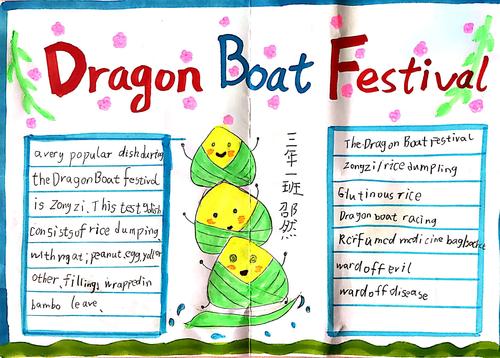 Dragon Boat Festival
a very popular dish during
the Dragon Boat festival
is zongzi. This
consists of rice dumping
with meat; peanut, egg, yolk or
other fillings wrapped in
bambo leave.
三年一班 邵然
The Dragon Boat Festival
zongzi/rice dumpling
Glutinous rice
Dragon boat racing
Perfumed medicine bag
ward off evil
ward off disease